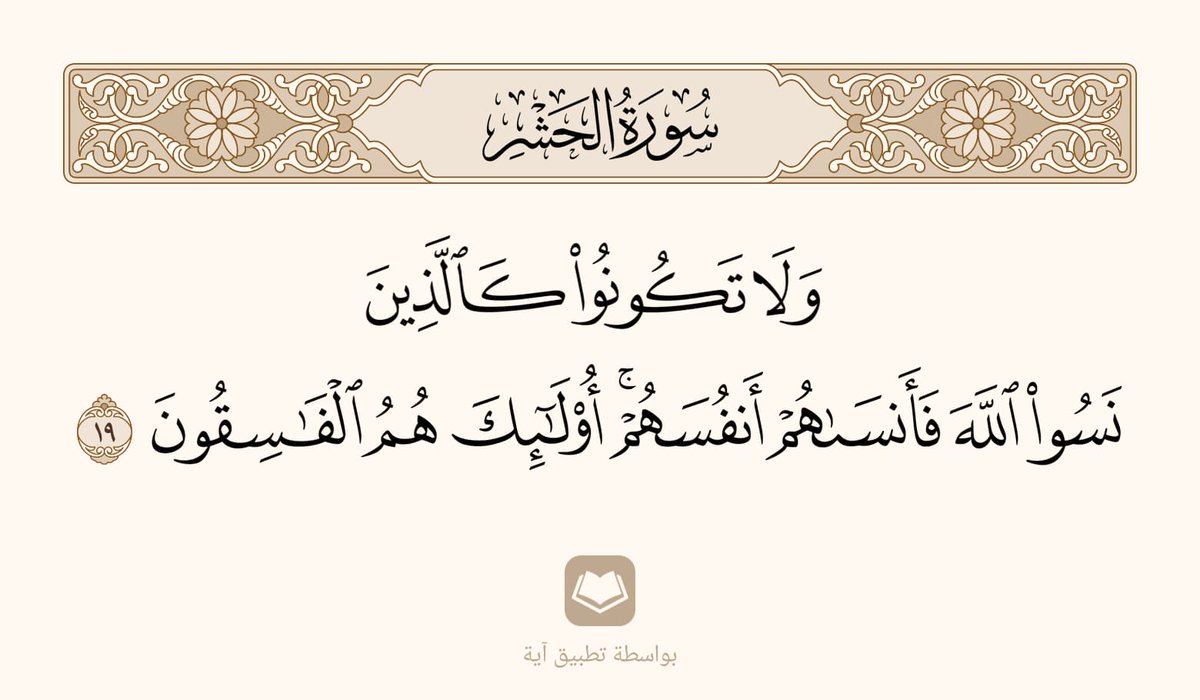 سُورَةُ الحَشْرِ
وَلَا تَكُونُوا۟ كَٱلَّذِينَ
نَسُوا۟ ٱللَّهَ فَأَنسَىٰهُمْ أَنفُسَهُمْ ۚ أُو۟لَـٰٓئِكَ هُمُ ٱلْفَـٰسِقُونَ ١٩
بواسطة تطبيق آية